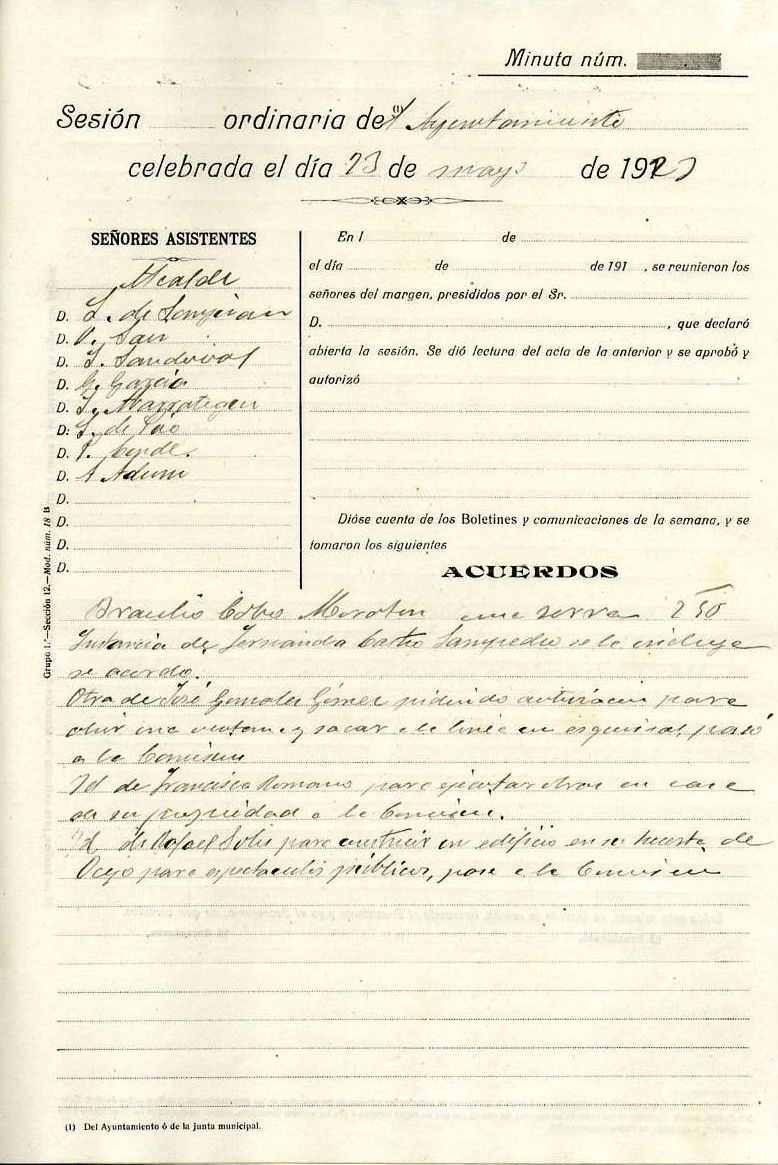 Minuta núm.
Sesión ordinaria del (1) Ayuntamiento
celebrada el día 23 de mayo de 192
SEÑORES ASISTENTES
Alcalde
D. L. de
D. V. Sau
D. S. Sandoval
D. G. García
D. S.
D. S. de
D. P.
D. A
D.
D.
D.
D.
En l de
el día de de 191 , se reunieron los
señores del margen, presididos por el Sr.
D. , que declaró
abierta la sesión. Se dió lectura del acta de la anterior y se aprobó y
autorizó
Dióse cuenta de los Boletines y comunicaciones de la semana, y se
tomaron los siguientes
ACUERDOS
Braulio Cobo una 250
Instancia de Fernanda Castro Sampedro se le incluye
se acordó.
Otra de José Gonzalez Gómez pidiendo autorización para
abrir una ventana y sacar a la linea en pasó
a la Comision
Id de Francisco Romano para ejecutar obras en casa
de su propiedad a la Comision.
Id de Rafael Solis para construir un edificio en su huerta de
Ocejo para espectaculos públicos, pase a la Comision
Grupo 1.º—Sección 12.—Mod. núm. 18 B
(1) Del Ayuntamiento ó de la junta municipal.